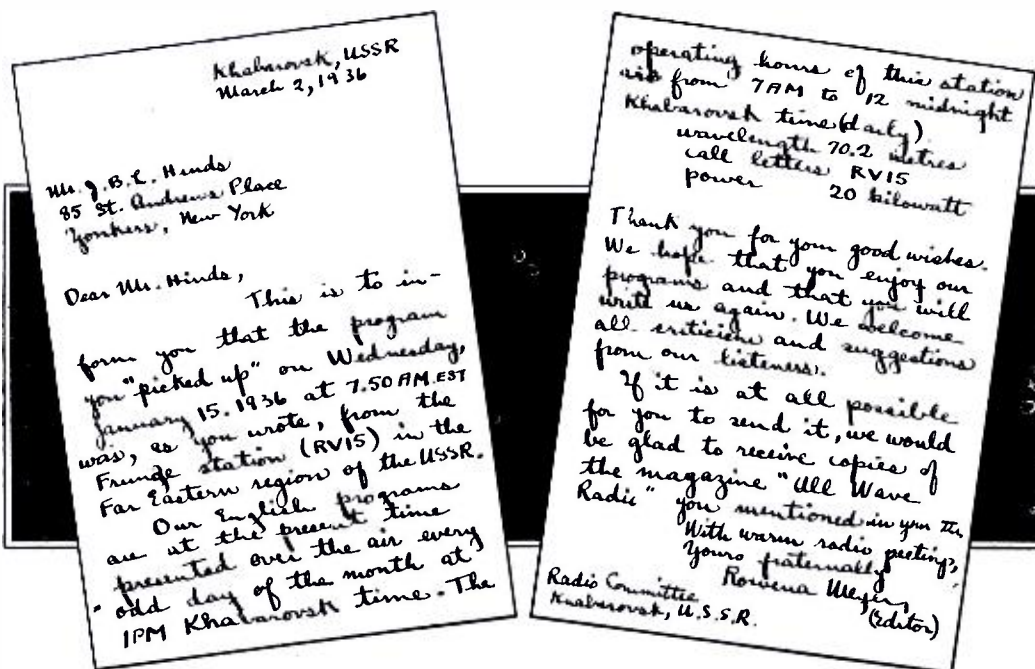 Khabarovsk, USSR
March 2, 1936
Mr. J.B.L. Hinds
85 St. Andrews Place
Yonkers, New York
Dear Mr. Hinds,
This is to in-
form you that the program
you "picked up" on Wednesday,
January 15. 1936 at 7.50 AM. EST
was, as you wrote, from the
Frunze station (RV15) in the
Far Eastern region of the USSR.
Our English programs
are at the present time
presented over the air every
odd day of the month at
1PM Khabarovsk time. The
operating hours of this station
are from 7AM to 12 midnight
Khabarovsk time (daily).
wavelength 70.2 metres
call letters RV15
power 20 kilowatt
Thank you for your good wishes.
We hope that you enjoy our
programs and that you will
write us again. We welcome
all criticism and suggestions
from our listeners.
If it is at all possible
for you to send it, we would
be glad to receive copies of
the magazine "All Wave
Radio" you mentioned in your
With warm radio greetings,
Yours fraternally,
Rowena Meyer,
(Editor)
Radio Committee
Khabarovsk, U.S.S.R.